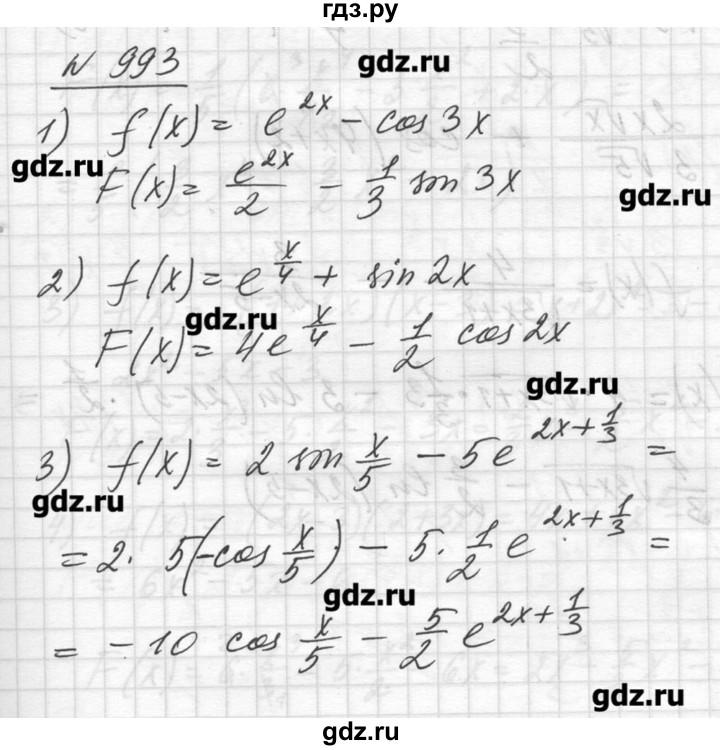 гдз.ру
N 993
gdz.ru
1) f(x) = e^{2x} - cos 3x
gdz.ru
F(x) = \frac{e^{2x}}{2} - \frac{1}{3} sin 3x
gdz.ru
2) f(x) = e^{\frac{x}{4}} + sin 2x
gdz.ru
F(x) = 4e^{\frac{x}{4}} - \frac{1}{2} cos 2x
gdz.ru
3) f(x) = 2 sin \frac{x}{5} - 5e^{2x+\frac{1}{3}} =
gdz.ru
= 2 · 5(-cos \frac{x}{5}) - 5 · \frac{1}{2} e^{2x+\frac{1}{3}} =
gdz.ru
= -10 cos \frac{x}{5} - \frac{5}{2} e^{2x+\frac{1}{3}}
gdz.ru
gdz.ru